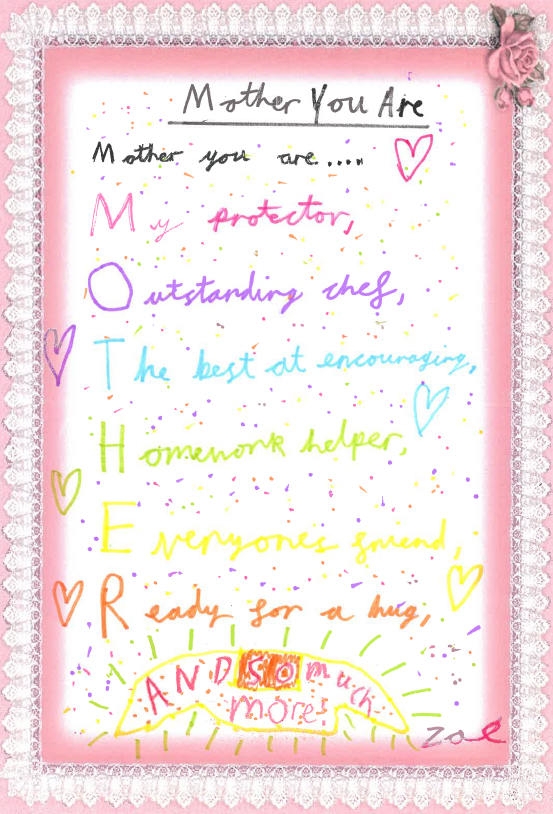 Mother You Are
Mother you are.....
My protector,
Outstanding chef,
The best at encouraging,
Homework helper,
Everyones friend,
Ready for a hug,
AND SO much
more!
zoe